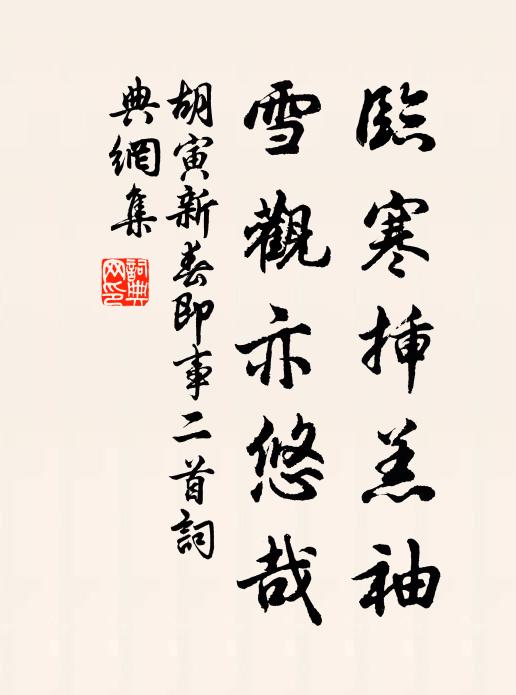 臨寒揷羔袖
雪觀亦悠哉
胡寅新春即事二首詞
典網集
詞典
网印